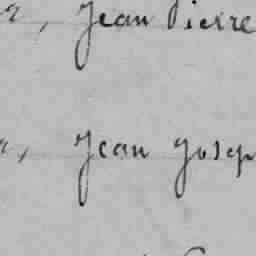 , Jean Pierre
, Jean Josep